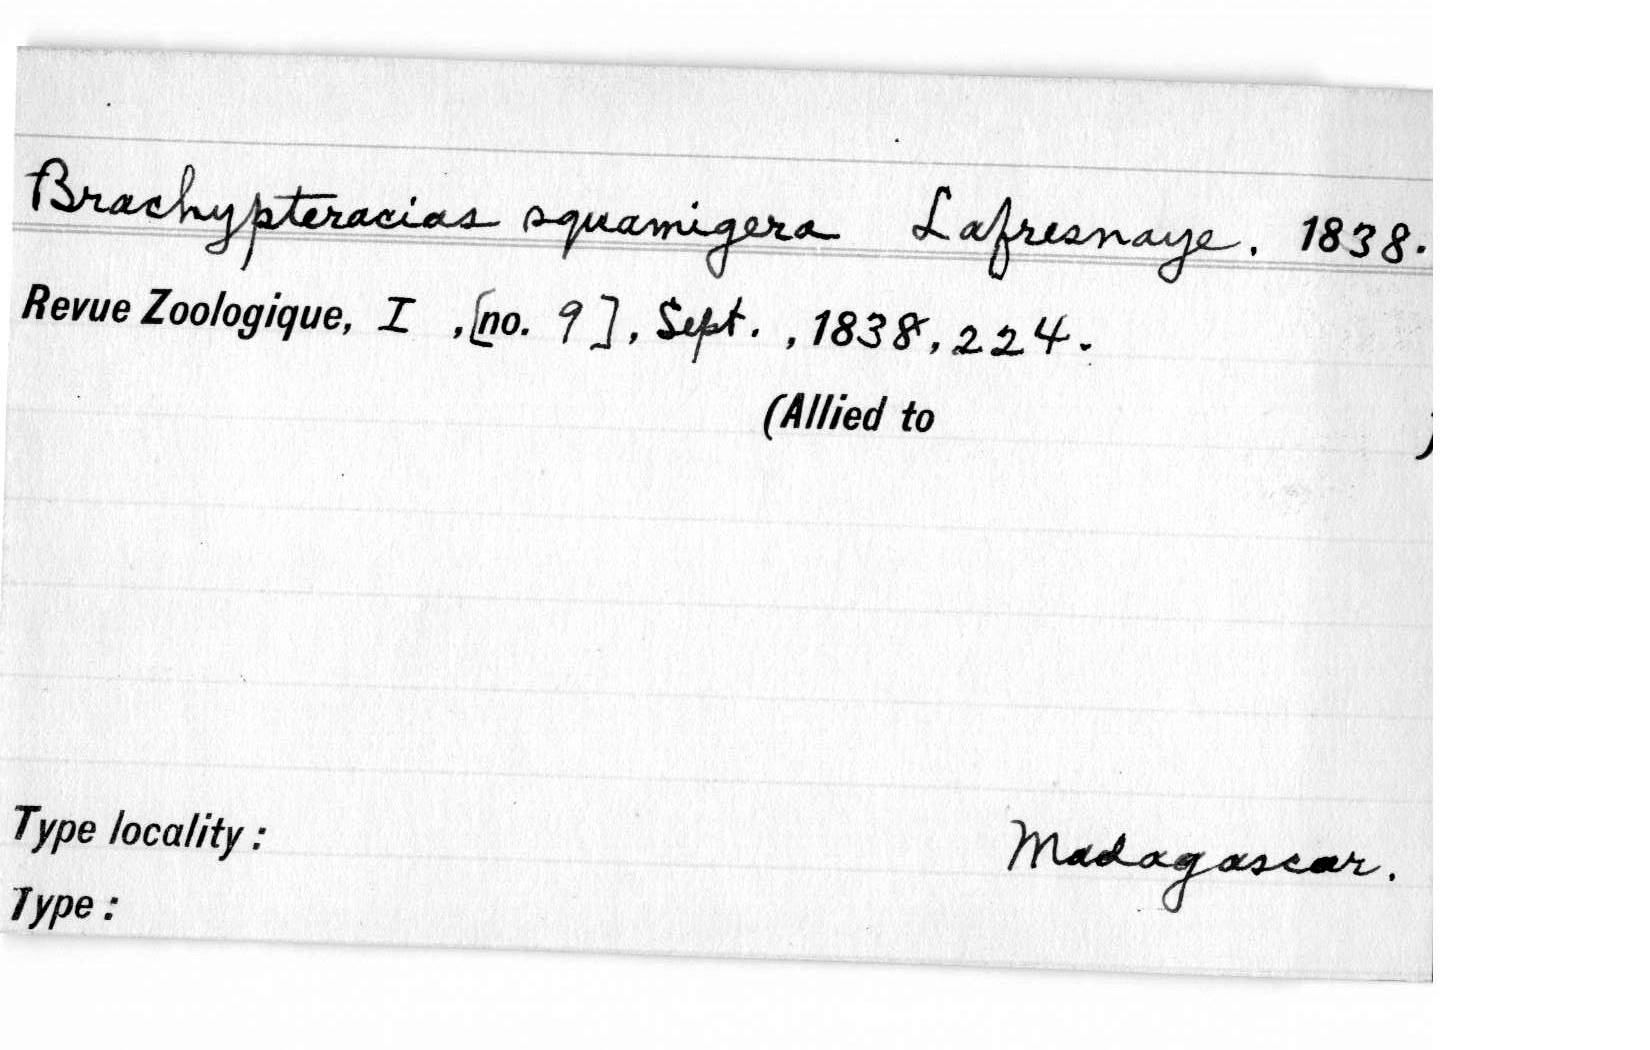 Brachypteracias squamigera Lafresnaye. 1838.
Revue Zoologique, I, [no. 9], Sept., 1838, 224.
(Allied to )
Type locality: Madagascar.
Type: